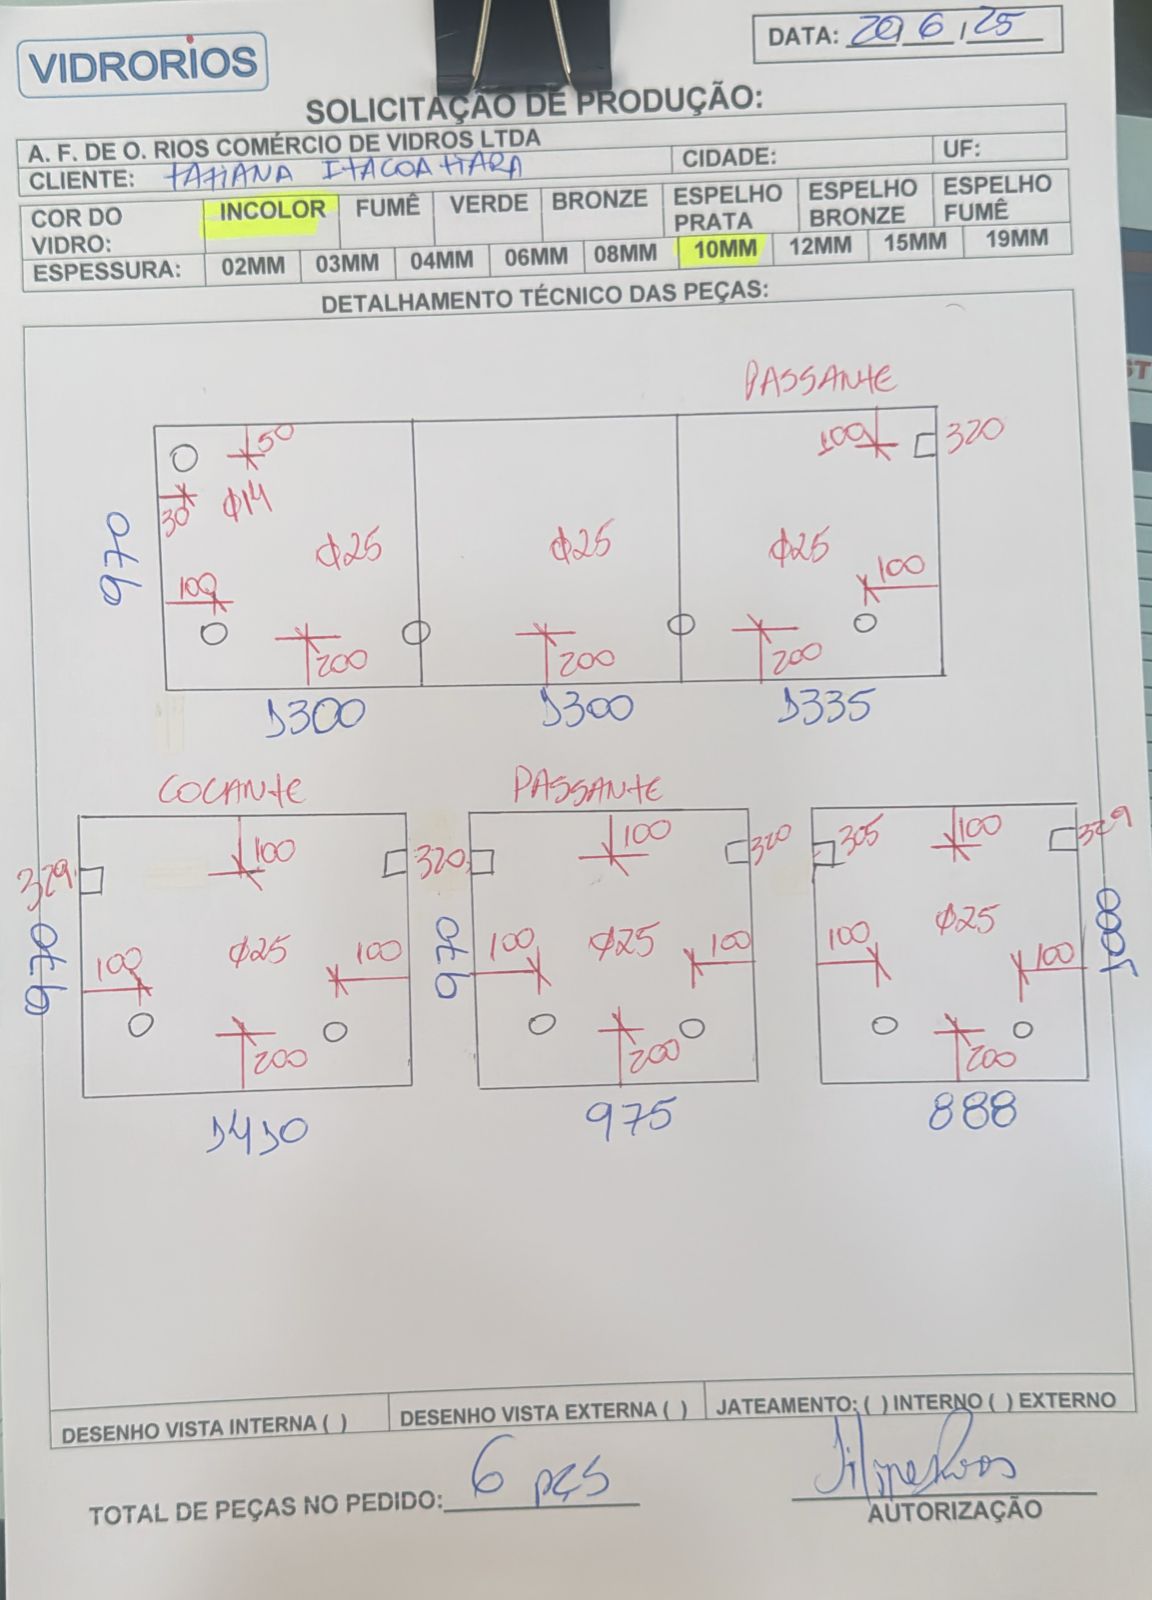 VIDRORIOS
DATA: 20/6/25
SOLICITAÇÃO DE PRODUÇÃO:
A. F. DE O. RIOS COMÉRCIO DE VIDROS LTDA
CLIENTE: TATIANA ITACOATIARA CIDADE: UF:
COR DO VIDRO: INCOLOR FUMÊ VERDE BRONZE ESPELHO PRATA ESPELHO BRONZE ESPELHO FUMÊ
ESPESSURA: 02MM 03MM 04MM 06MM 08MM 10MM 12MM 15MM 19MM
DETALHAMENTO TÉCNICO DAS PEÇAS:
PASSANTE
50 100 320
30 Φ14
970 Φ25 Φ25 Φ25
100 100
200 200 200
1300 1300 1335
COCANTE PASSANTE
329 100 320 100 320 305 100 329
970 Φ25 970 Φ25 Φ25 1000
100 100 100 100 100 100
200 200 200
1410 975 888
DESENHO VISTA INTERNA ( ) DESENHO VISTA EXTERNA ( ) JATEAMENTO: ( ) INTERNO ( ) EXTERNO
TOTAL DE PEÇAS NO PEDIDO: 6 pçs
AUTORIZAÇÃO